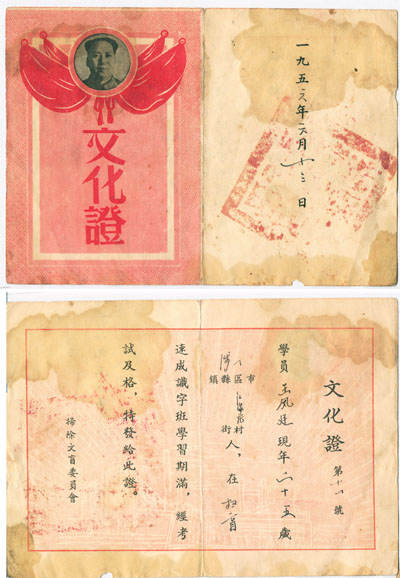 文化證
一九五六年六月 日
文化證 第 號
學員 王 廷 現年 十五歲
市
區 村
縣鎮 街
人，在 掃盲
速成識字班學習期滿，經考
試及格，特發給此證。
掃除文盲委員會